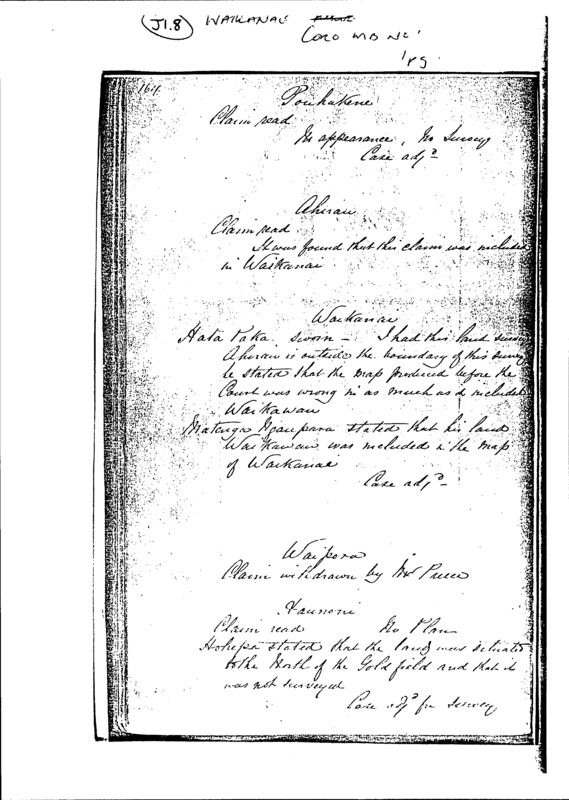 J1.8 WAIKANAE
CORO MB No 1
164
Claim read
No appearance, No Survey
Case adjd
Aherau
Claim read
It was found that this claim was included
in Waikanai
Waikanai
Hata Paka sworn - I had this land
Aherau is outside the boundary of this
he stated that the map produced before the
Court was wrong in as much as it included
Waikawau
Matenga stated that his land
Waikawau was included in the map
of Waikanae
Case adjd
Waipora
Claim withdrawn by Mr Preece
Claim read No Plan
Hohepa stated that the land was situate
to the North of the Gold field and that it
was not surveyed
Case adjd for survey